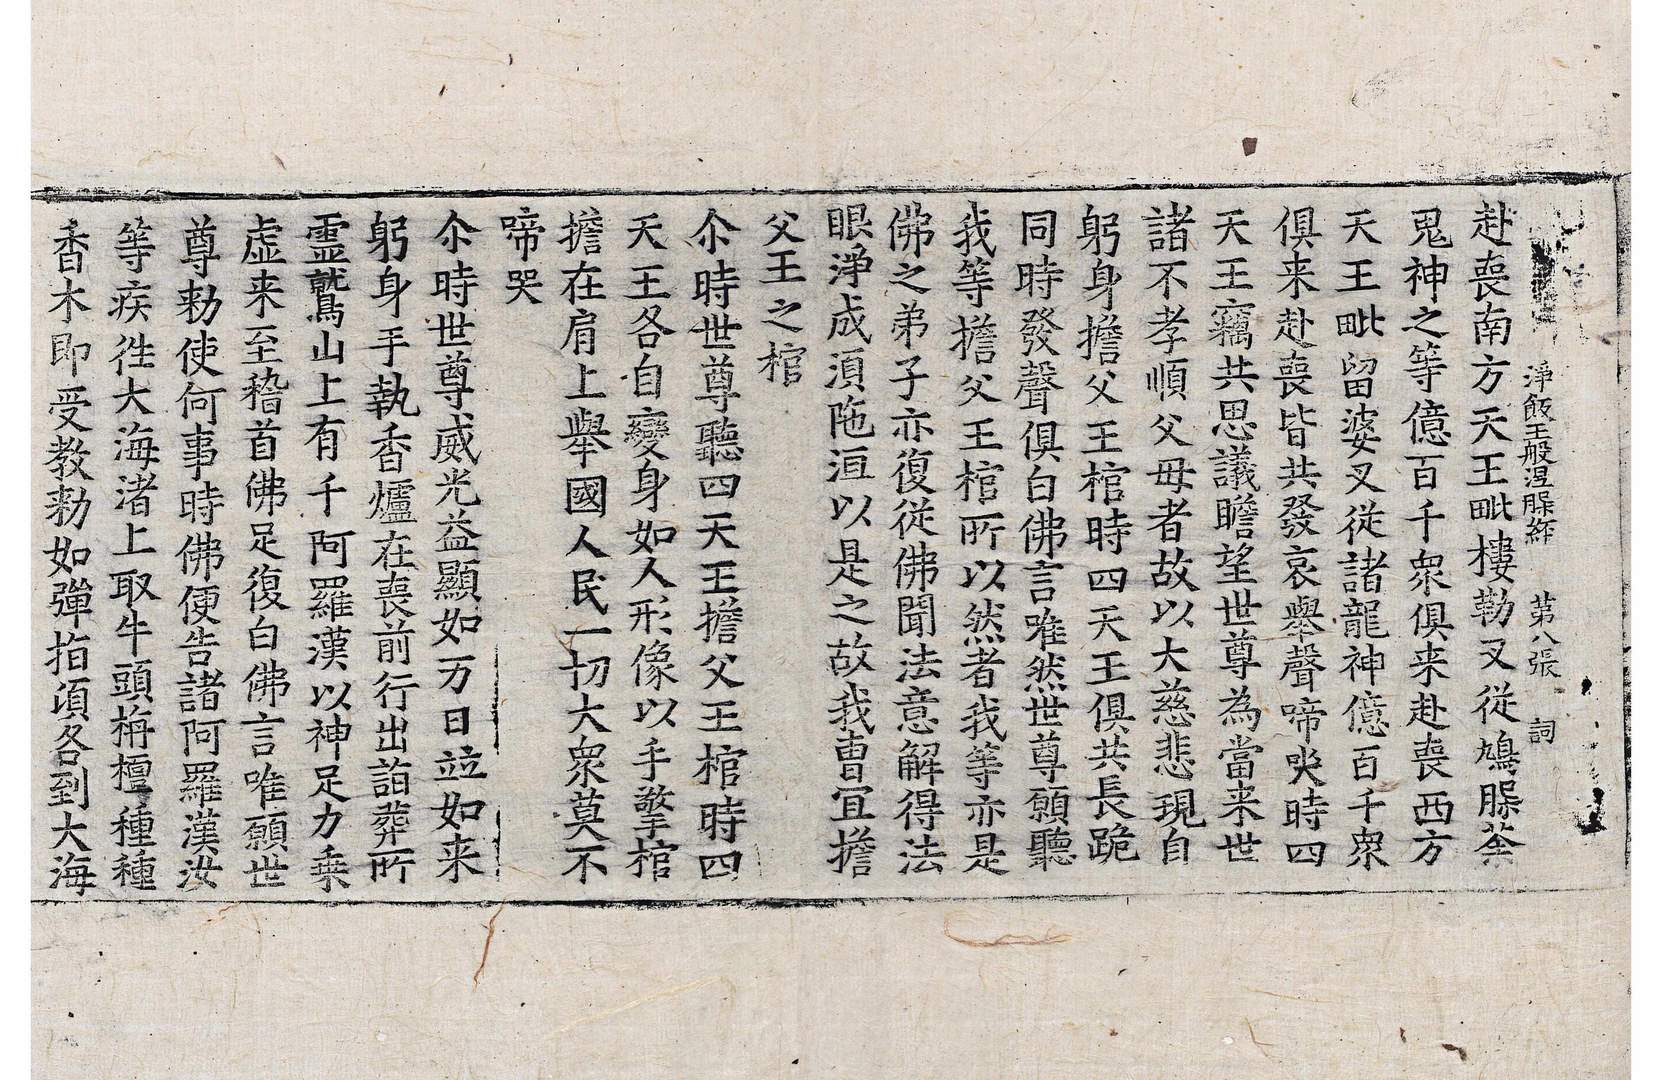 淨飯王般涅槃經 第八張 詞
赴喪南方天王毗樓勒叉從鳩槃荼
鬼神之等億百千衆俱来赴喪西方
天王毗留婆叉從諸龍神億百千衆
俱来赴喪皆共發哀舉聲啼哭時四
天王竊共思議瞻望世尊為當来世
諸不孝順父母者故以大慈悲現自
躬身擔父王棺時四天王俱共長跪
同時發聲俱白佛言唯然世尊願聽
我等擔父王棺所以然者我等亦是
佛之弟子亦復從佛聞法意解得法
眼淨成湏陁洹以是之故我曺冝擔
父王之棺
尒時世尊聽四天王擔父王棺時四
天王各自變身如人形像以手擎棺
擔在肩上舉國人民一切大衆莫不
啼哭
尒時世尊威光益顯如万日並如来
躬身手執香爐在喪前行出詣葬所
靈鷲山上有千阿羅漢以神足力乗
虚来至稽首佛足復白佛言唯願世
尊勑使何事時佛便告諸阿羅漢汝
等疾徃大海渚上取牛頭栴檀種種
香木即受教勑如彈指頃各到大海